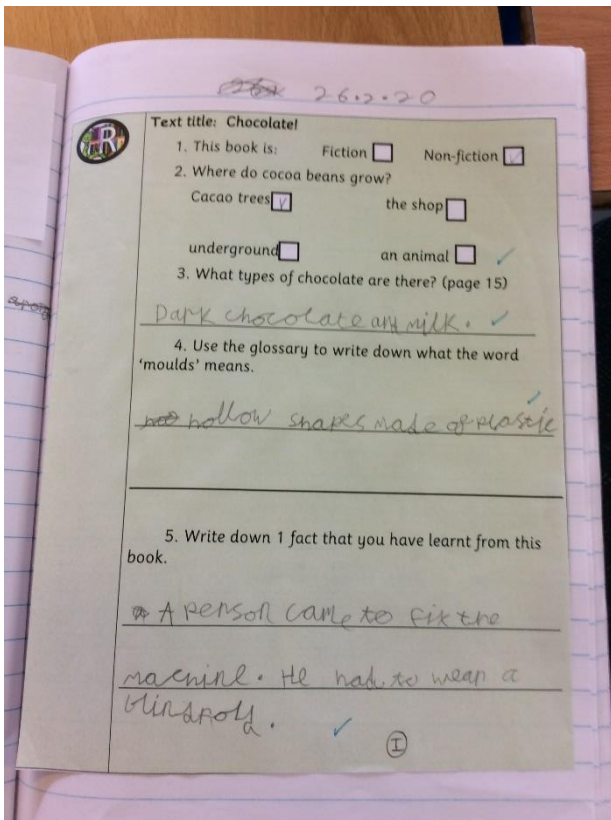 26.2.20
R
Text title: Chocolate!
1. This book is: Fiction Non-fiction
2. Where do cocoa beans grow?
Cacao trees the shop
underground an animal
3. What types of chocolate are there? (page 15)
Dark chocolate and milk.
4. Use the glossary to write down what the word
'moulds' means.
hollow shapes made of plastic
5. Write down 1 fact that you have learnt from this
book.
A person came to fix the
machine. He had to wear a
blindfold.
I